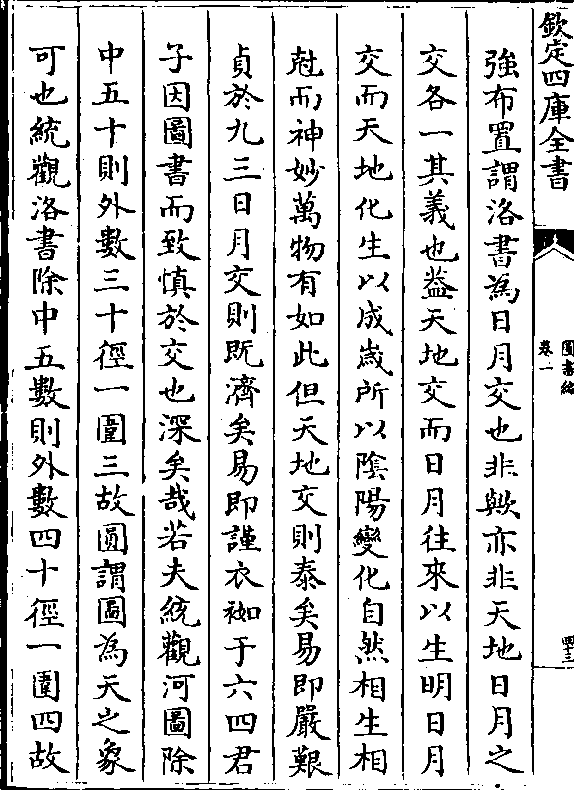 欽定四庫全書
圖書編
卷一
四十三
強布置謂洛書為日月交也非歟亦非天地日月之
交各一其義也葢天地交而日月往來以生明日月
交而天地化生以成歲所以陰陽變化自然相生相
尅而神妙萬物有如此但天地交則泰矣易即嚴艱
貞於九三日月交則既濟矣易即謹衣袽于六四君
子因圖書而致慎於交也深矣哉若夫統觀河圖除
中五十則外數三十徑一圍三故圓謂圖為天之象
可也統觀洛書除中五數則外數四十徑一圍四故